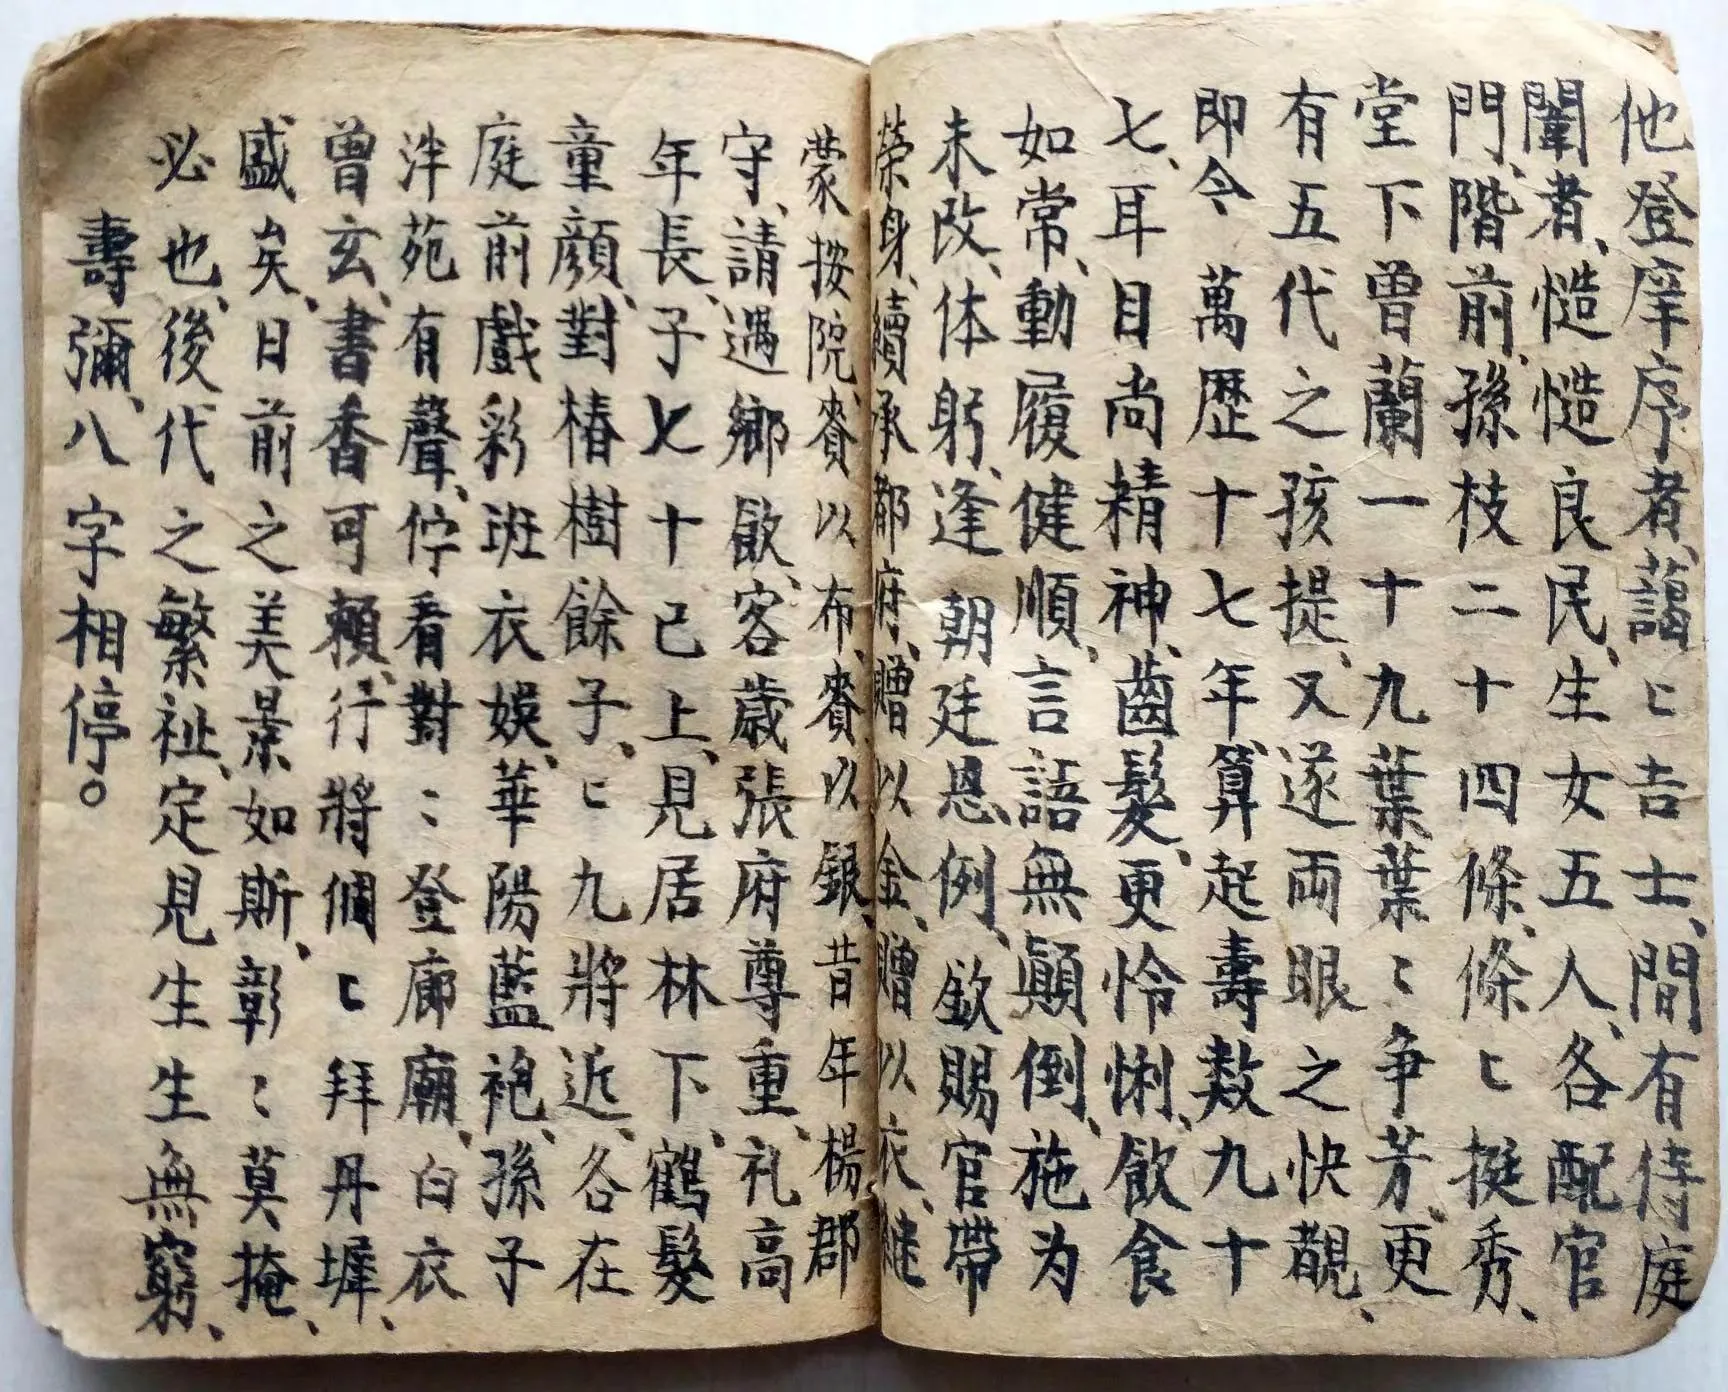 他登庠序者、藹〻吉士、間有侍庭
闈者、慥慥良民、生女五人、各配官
門、階前、孫枝二十四條、條〻挺秀、
堂下曾蘭一十九葉葉〻争芳、更
有五代之孩提、又遂両眼之快覩、
即今萬歷十七年、算起壽数九十
七、耳目尚精神、齒髮、更怜悧、飲食
如常、動履健順、言語無顛倒、施为
未改、体躬、逢朝廷恩例、欽賜官帶
荣身、續承郡府、贈以金、贈以衣、継
蒙按院、賚以布、賚以銀、昔年楊郡
守、請遇鄉飲、客歳張府尊重、礼高
年長、子七十已上、見居林下、鶴髮
童顔、對椿樹餘子、〻九將近、各在
庭前戲彩班衣娛、華陽藍袍、孫子
泮苑有聲、佇看對〻登廊廟、白衣
曾玄、書香可頼、行將個〻拜丹墀、
盛矣、日前之美景如斯、彰〻莫掩、
必也、後代之繁祉、定見生生無窮、
壽彌、八字相停。